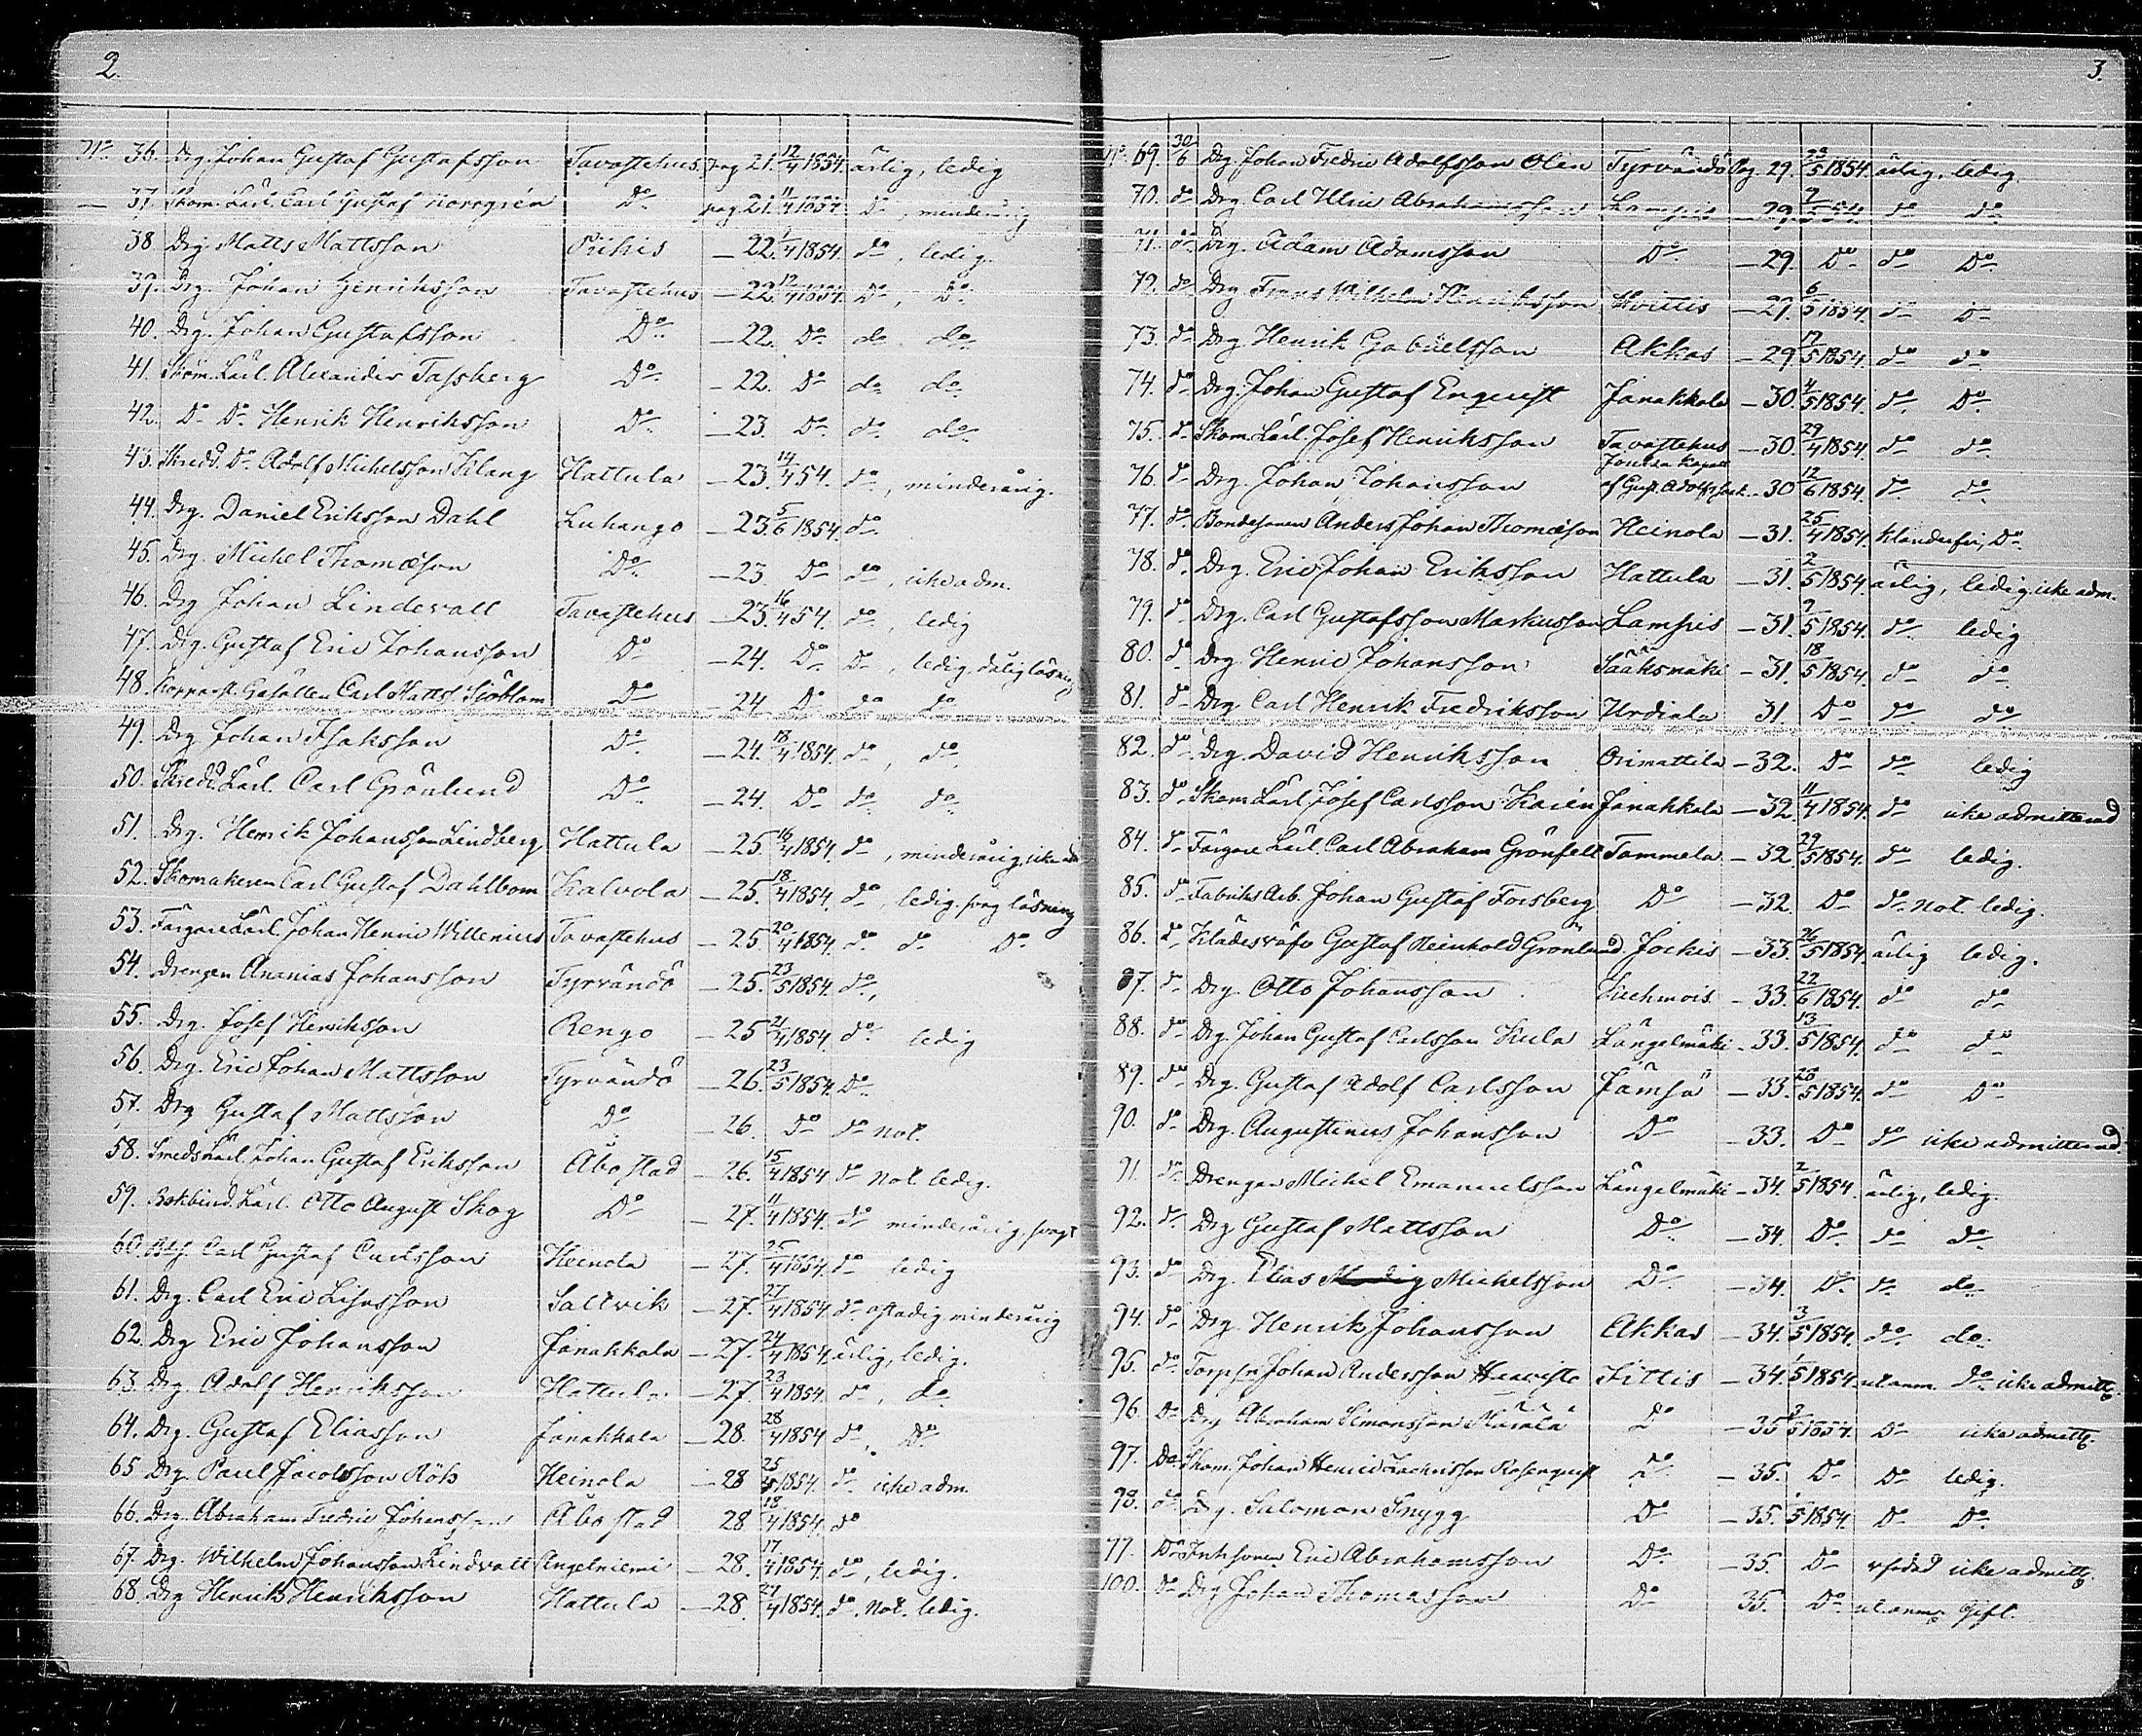 2.
No. 36. Drg. Johan Gustaf Gustafsson Tavastehus pag 21. 12/4 1854. ärlig, ledig
— 37. Skom. Lärl. Carl Gustaf Norogrén Do pag. 21. 11/4 1854. Do, minderårig
38 Drg. Matts Mattsson Pirkis — 22. 1/4 1854. do, ledig.
39. Drg. Johan Henriksson Tavastehus — 22. 12/4 1854. Do, Do.
40. Drg. Johan Gustafsson Do — 22. Do. do. do.
41. Skom. Lärl. Alexander Tassberg Do — 22. Do do do.
42. Do Do Henrik Henriksson Do — 23. Do. do. do.
43. Skredd. Do. Adolf Michelsson Hattula — 23. 14/4 54. do, minderårig.
44. Drg. Daniel Eriksson Dahl Luhango — 23. 5/6 1854. do.
45. Drg. Michel Thomæson Do — 23 Do do, icke adm.
46. Drg Johan Lindevall Tavastehus — 23. 16/4 54. do, ledig
47. Drg. Gustaf Eric Johansson Do — 24. Do. Do, ledig, dålig läsning
48. Gesällen Carl Matts. Sjöblom Do 24 Do do do
49. Drg. Johan Isaksson Do — 24. 18/4 1854. do, do.
50. Skredd. Lärl. Carl Grönlund Do — 24. Do do. do.
51. Drg. Henrik Johansson Lindberg Hattula — 25. 16/4 1854. do, minderårig, icke adm
52. Skomakeren Carl Gustaf Dahlbom Kalvola — 25. 18/4 1854. do, ledig. svag läsning
53. Färgare Lärl. Johan Henric Willenius Tavastehus — 25 20/4 1854. do. do. Do.
54. Drengen Ananias Johansson Tyrvändö — 25. 23/5 1854. do.,
55. Drg. Josef Henriksson Rengo — 25 21/4 1854. do. ledig
56. Drg. Eric Johan Mattsson Tyrvändö — 26. 23/5 1854. Do
57. Drg Gustaf Mattsson Do — 26. Do do Not.
58. Smeds Lärl. Johan Gustaf Eriksson Åbo stad — 26. 15/4 1854 do Not. ledig.
59. Bokbind. Lärl. Otto August Skog Do — 27. 11/4 1854. do minderårig,
60. Carl Gustaf Carlsson Heinola — 27. 25/4 1854. do ledig
61. Drg. Carl Eric Saltvik — 27. 27/4 1854. do ostadig minderårig
62. Drg Eric Johansson Janakkala — 27. 24/4 1854. ärlig, ledig.
63. Drg. Adolf Henriksson Hattula — 27. 23/4 1854. do, do.
64. Drg. Gustaf Eliasson Janakkala — 28. 28/4 1854 do, Do.
65 Drg. Paul Jacobsson Röks Heinola — 28 25/5 1854. do icke adm.
66. Drg. Abraham Fredric Johansson Åbo stad 28 18/4 1854. do
67. Drg. Wilhelm Johansson Lindvall Angelniemi — 28. 17/4 1854. do, ledig.
68. Drg Henrik Henriksson Hattula — 28. 24/4 1854. do. Not. ledig.
3.
No. 69. 30/6 Drg. Johan Fredric Adolfsson Olen Tyrvändö Pag. 29. 23/5 1854. ärlig, ledig.
70. do Drg. Carl Ulric Abrahamsson Lampis — 29. 7/5 54. do do
71. do. Drg. Adam Adamsson Do — 29. Do do Do.
72. do Drg. Frans Wilhelm Henriksson Hvittis — 29. 6/5 1854. do Do
73. do Drg. Henrik Gabrielsson Akkas — 29. 17/5 1854. do do
74. do Drg. Johan Gustaf Enquist Janakkala — 30. 4/5 1854. do. Do.
75. do Skom. Lärl. Josef Henriksson Tavastehus — 30. 29/4 1854. do do
76. do Drg. Johan Johansson Joutsa Kapell af Gust. Adolfs sock. — 30 12/6 1854. do do
77. do. Bondesonen Anders Johan Thomæson Heinola — 31. 25/4 1854. klanderfri, Do.
78. do Drg. Eric Johan Eriksson Hattula — 31. 2/5 1854 ärlig, ledig, icke adm.
79. do Drg. Carl Gustafsson Markusson Lampis — 31. 7/5 1854. do. ledig
80. do Drg Henric Johansson Sääksmäki — 31. 18/5 1854. do do
81. do Drg. Carl Henrik Fredriksson Urdiala 31. Do do do
82. do Drg. David Henriksson Orimattila — 32. Do do ledig
83. do Skom. Lärl. Josef Carlsson Karén Janakkala — 32. 11/4 1854. do icke admitterad
84. do Färgare Lärl. Carl Abraham Grönfelt Tammela — 32 29/5 1854. do ledig.
85. do Fabriks Arb. Johan Gustaf Forsberg Do — 32 Do do. Not. ledig.
86. do Klädesväfv Gustaf Reinhold Grönlund Jockis — 33. 26/5 1854. ärlig ledig.
87. do Drg. Otto Johansson Kuhmois — 33. 22/6 1854. do do
88. do Drg. Johan Gustaf Carlsson Kula Längelmäki — 33. 13/5 1854. do do
89. do Drg. Gustaf Adolf Carlsson Jämsä — 33. 28/5 1854. do Do
90. do Drg. Augustinus Johansson Do — 33. Do do icke admitterad.
91. do Drengen Michel Emanuelsson Längelmäki — 34. 2/5 1854. ärlig, ledig.
92. do Drg Gustaf Mattsson Do. — 34. Do. do do.
93. do Drg. Elias Michelsson Do — 34. Do. do do.
94. do Drg. Henrik Johansson Akkas — 34. 3/5 1854. do do.
95. do. Torpson Johan Andersson Heaviste Iittis — 34. 1/5 1854 ut. anm. Do. icke admitt.
96. Do Drg Abraham Simonsson Määtälä Do — 35 3/5 1854. Do icke admitt.
97. Do. Skom. Johan Henric Zachrisson Rosenqvist Do — 35. Do Do ledig.
98. do Drg. Salomon Snygg Do — 35. 5 1854. Do Do.
99. Do Inhsonen Eric Abrahamsson Do — 35. Do icke admitt.
100. Do Drg Johan Thomasson Do 35. Do. ut. anm. Gift.